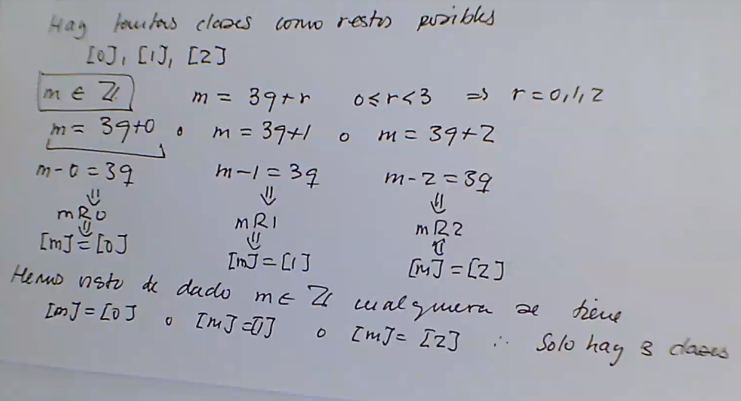 Hay tantas clases como restos posibles
[0], [1], [2]
m ∈ ℤ m = 3q+r 0≤r<3 ⇒ r=0,1,2
m = 3q+0 o m = 3q+1 o m = 3q+2
m-0=3q m-1=3q m-2=3q
⇓ ⇓ ⇓
mR0 mR1 mR2
⇓ ⇓ ⇓
[m]=[0] [m]=[1] [m]=[2]
Hemos visto dado m ∈ ℤ cualquiera se tiene
[m]=[0] o [m]=[1] o [m]=[2] ∴ Solo hay 3 clases